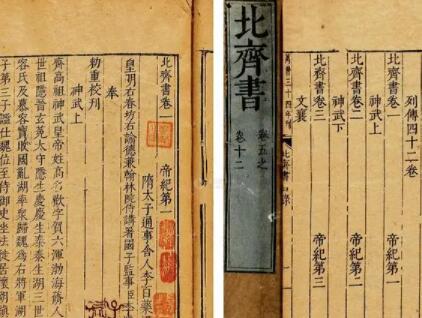 北齊書卷一 帝紀第一
隋太子通事舍人李百藥
皇明右春坊右諭德兼翰林院侍講署國子監事臣李
奉
勅重校刊
神武上
齊高祖神武皇帝姓高名歡字賀六渾渤海蓨人
世祖隱晉玄菟太守隱生慶慶生泰泰生湖三世
容氏及慕容寶敗國亂湖率衆歸魏爲右將軍湖
子第三子謐仕魏位至侍御史坐法徙居懷朔鎮
列傳四十二卷
北齊書卷一 帝紀第一
神武上
北齊書卷二 帝紀第二
神武下
北齊書卷三 帝紀第三
文襄
三十四年刊 北齊書
北齊書
卷五之
卷十二